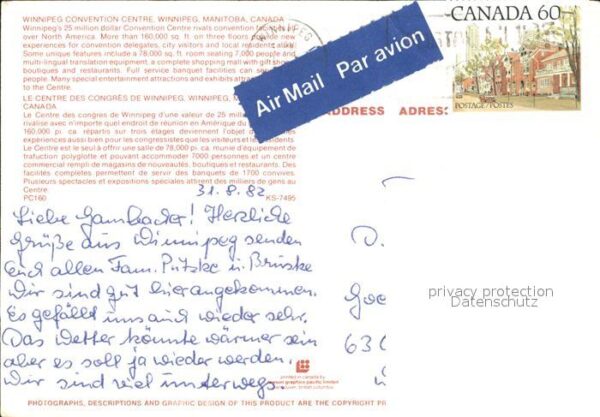 WINNIPEG CONVENTION CENTRE, WINNIPEG, MANITOBA, CANADA
Winnipeg's 25 million dollar Convention Centre rivals convention
over North America. More than 160,000 sq. ft. on three floors, provide new
experiences for convention delegates, city visitors and local residents
Some unique features include a 78,000 sq. ft. room seating 7,000 people and
multi-lingual translation equipment, a complete shopping mall with gift
boutiques and restaurants. Full service banquet facilities can
people. Many special entertainment attractions and exhibits
to the Centre.
LE CENTRE DES CONGRÈS DE WINNIPEG, WINNIPEG,
CANADA
Le Centre des congrès de Winnipeg d'une valeur de 25
rivalise avec n'importe quel endroit de réunion en Amérique du
160,000 pi. ca. répartis sur trois étages deviennent l'objet
expériences aussi bien pour les congressistes que les visiteurs et les
Le Centre est le seul à offrir une salle de 78,000 pi. ca. munie d'équipement de
traduction polyglotte et pouvant accommoder 7000 personnes et un centre
commercial rempli de magasins de nouveautés, boutiques et restaurants. Des
facilités complètes permettent de servir des banquets de 1700 convives.
Plusieurs spectacles et expositions spéciales attirent des milliers de gens au
Centre.
PC160 KS-7495
Air Mail Par avion
CANADA 60
POSTAGE/POSTES
WINNIPEG
ADDRESS ADRES
31.8.82
Liebe Gambacher! Herzliche
Grüße aus Winnipeg senden
Euch allen Fam. Putzke u. Brüske
Wir sind gut hier angekommen.
Es gefällt uns auch wieder sehr.
Das Wetter könnte wärmer sein
aber es soll ja wieder werden.
Wir sind viel unterwegs.
D.
Goe
630
privacy protection
Datenschutz
printed in canada by
PHOTOGRAPHS, DESCRIPTIONS AND GRAPHIC DESIGN OF THIS PRODUCT ARE THE COPYRIGHT PR